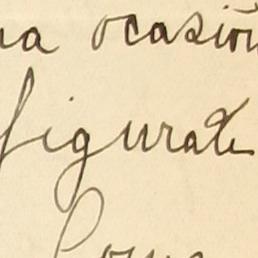 na ocasión
figurate